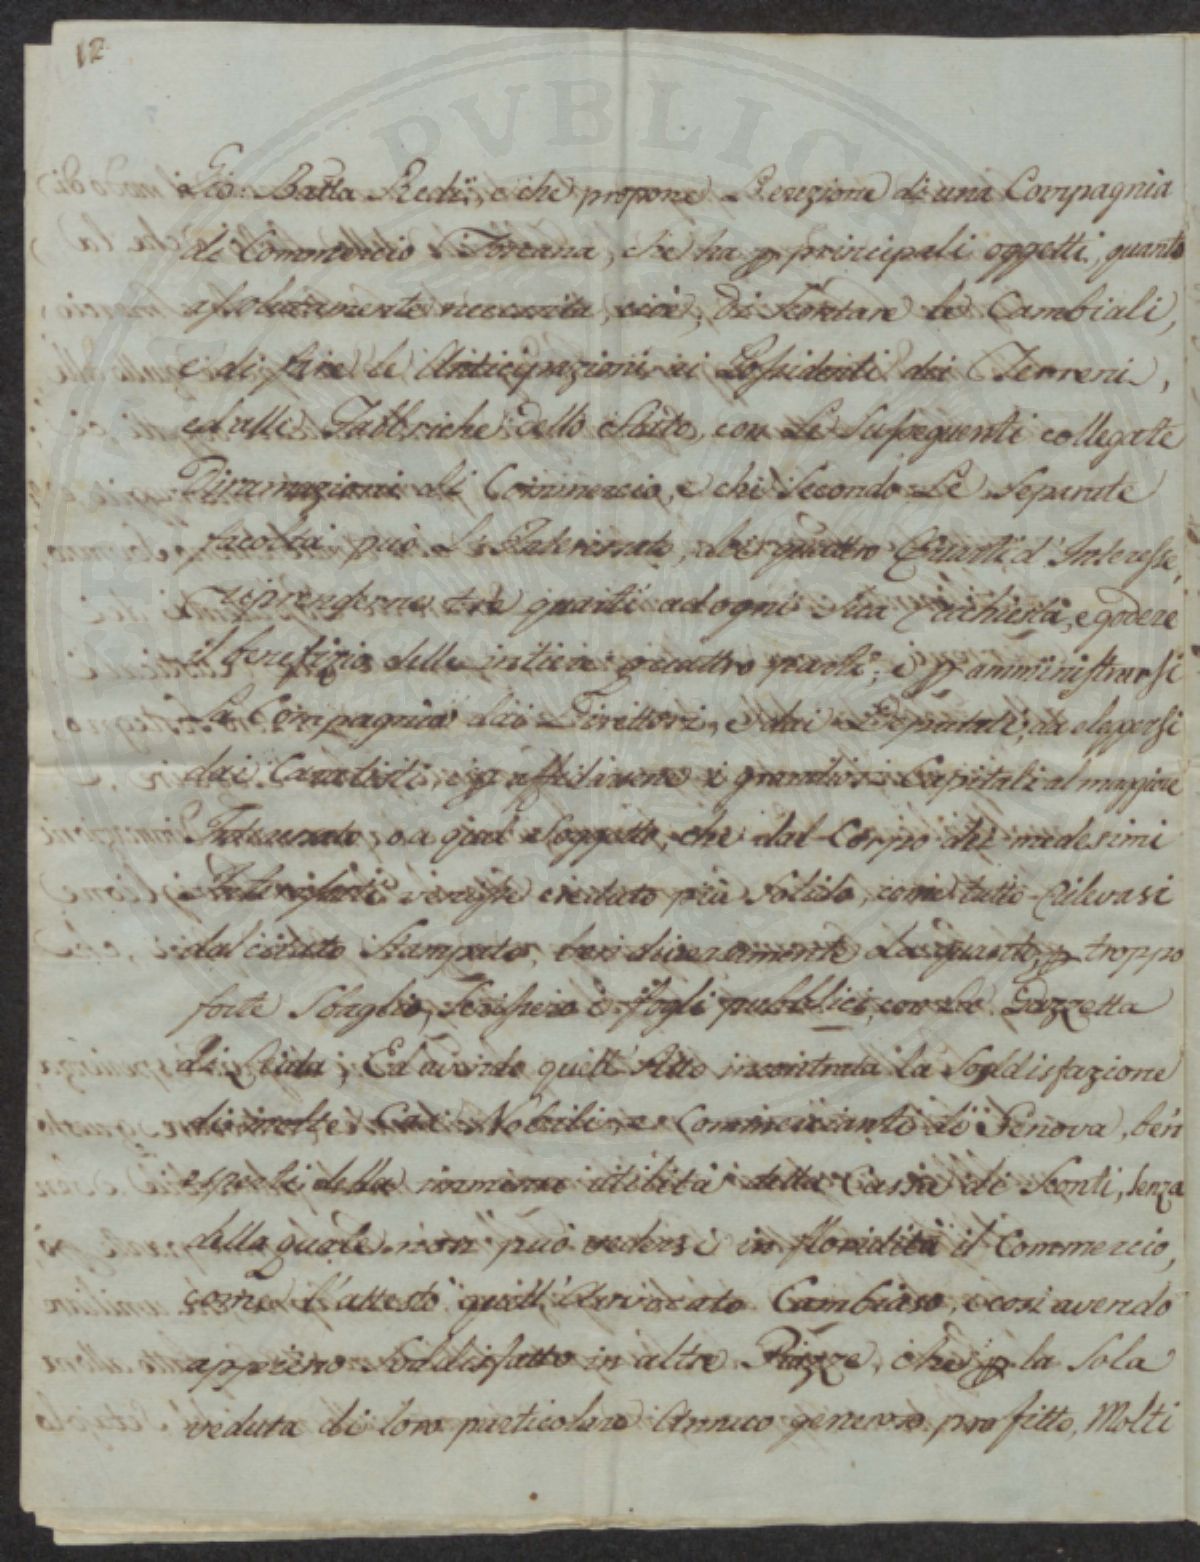 12
Gio: Batta Redi, e che propone l'erezione di una Compagnia
di Commercio Toscana, che ha p principali oggetti, quanto
assolutamente necessita, cioè, di scontare le Cambiali,
e di fare le Anticipazioni ai Possidenti dei Terreni,
ed alle Fabbriche dello Stato, con le susseguenti collegate
Diramazioni di Commercio, e chi secondo le separate
facoltà può l'Interessato, dei quattro Quarti d'Interesse,
riprenderne trè quarti ad ogni sua richiesta, e godere
il benefizio delle intiere quattro parti; e p amministrarsi
la Compagnia dai Direttori, e dai Deputati, da eleggersi
dai Caratisti, e p affidarne i grandiosi Capitali al maggiore
Interessato, o a quel Soggetto, che dal Corpo dei medesimi
Interessati venisse creduto più solido, come tutto rilevasi
dal citato Stampato, ben diversamente da quanto, p troppo
forte Sbaglio, scrissero i fogli pubblici, con la Gazzetta
di Leida; Ed avendo quell'Atto incontrata la Soddisfazione
di molte Case Nobili, e Commercianti di Genova, ben
esperti della immensa utilità della Cassa di Sconti, senza
della quale non può vedersi in floridità il Commercio,
come l'attestò quell'Avvocato Cambiaso, e così avendo
appieno soddisfatto in altre Piazze, che p la sola
veduta di loro particolare Annuo generoso profitto, Molti